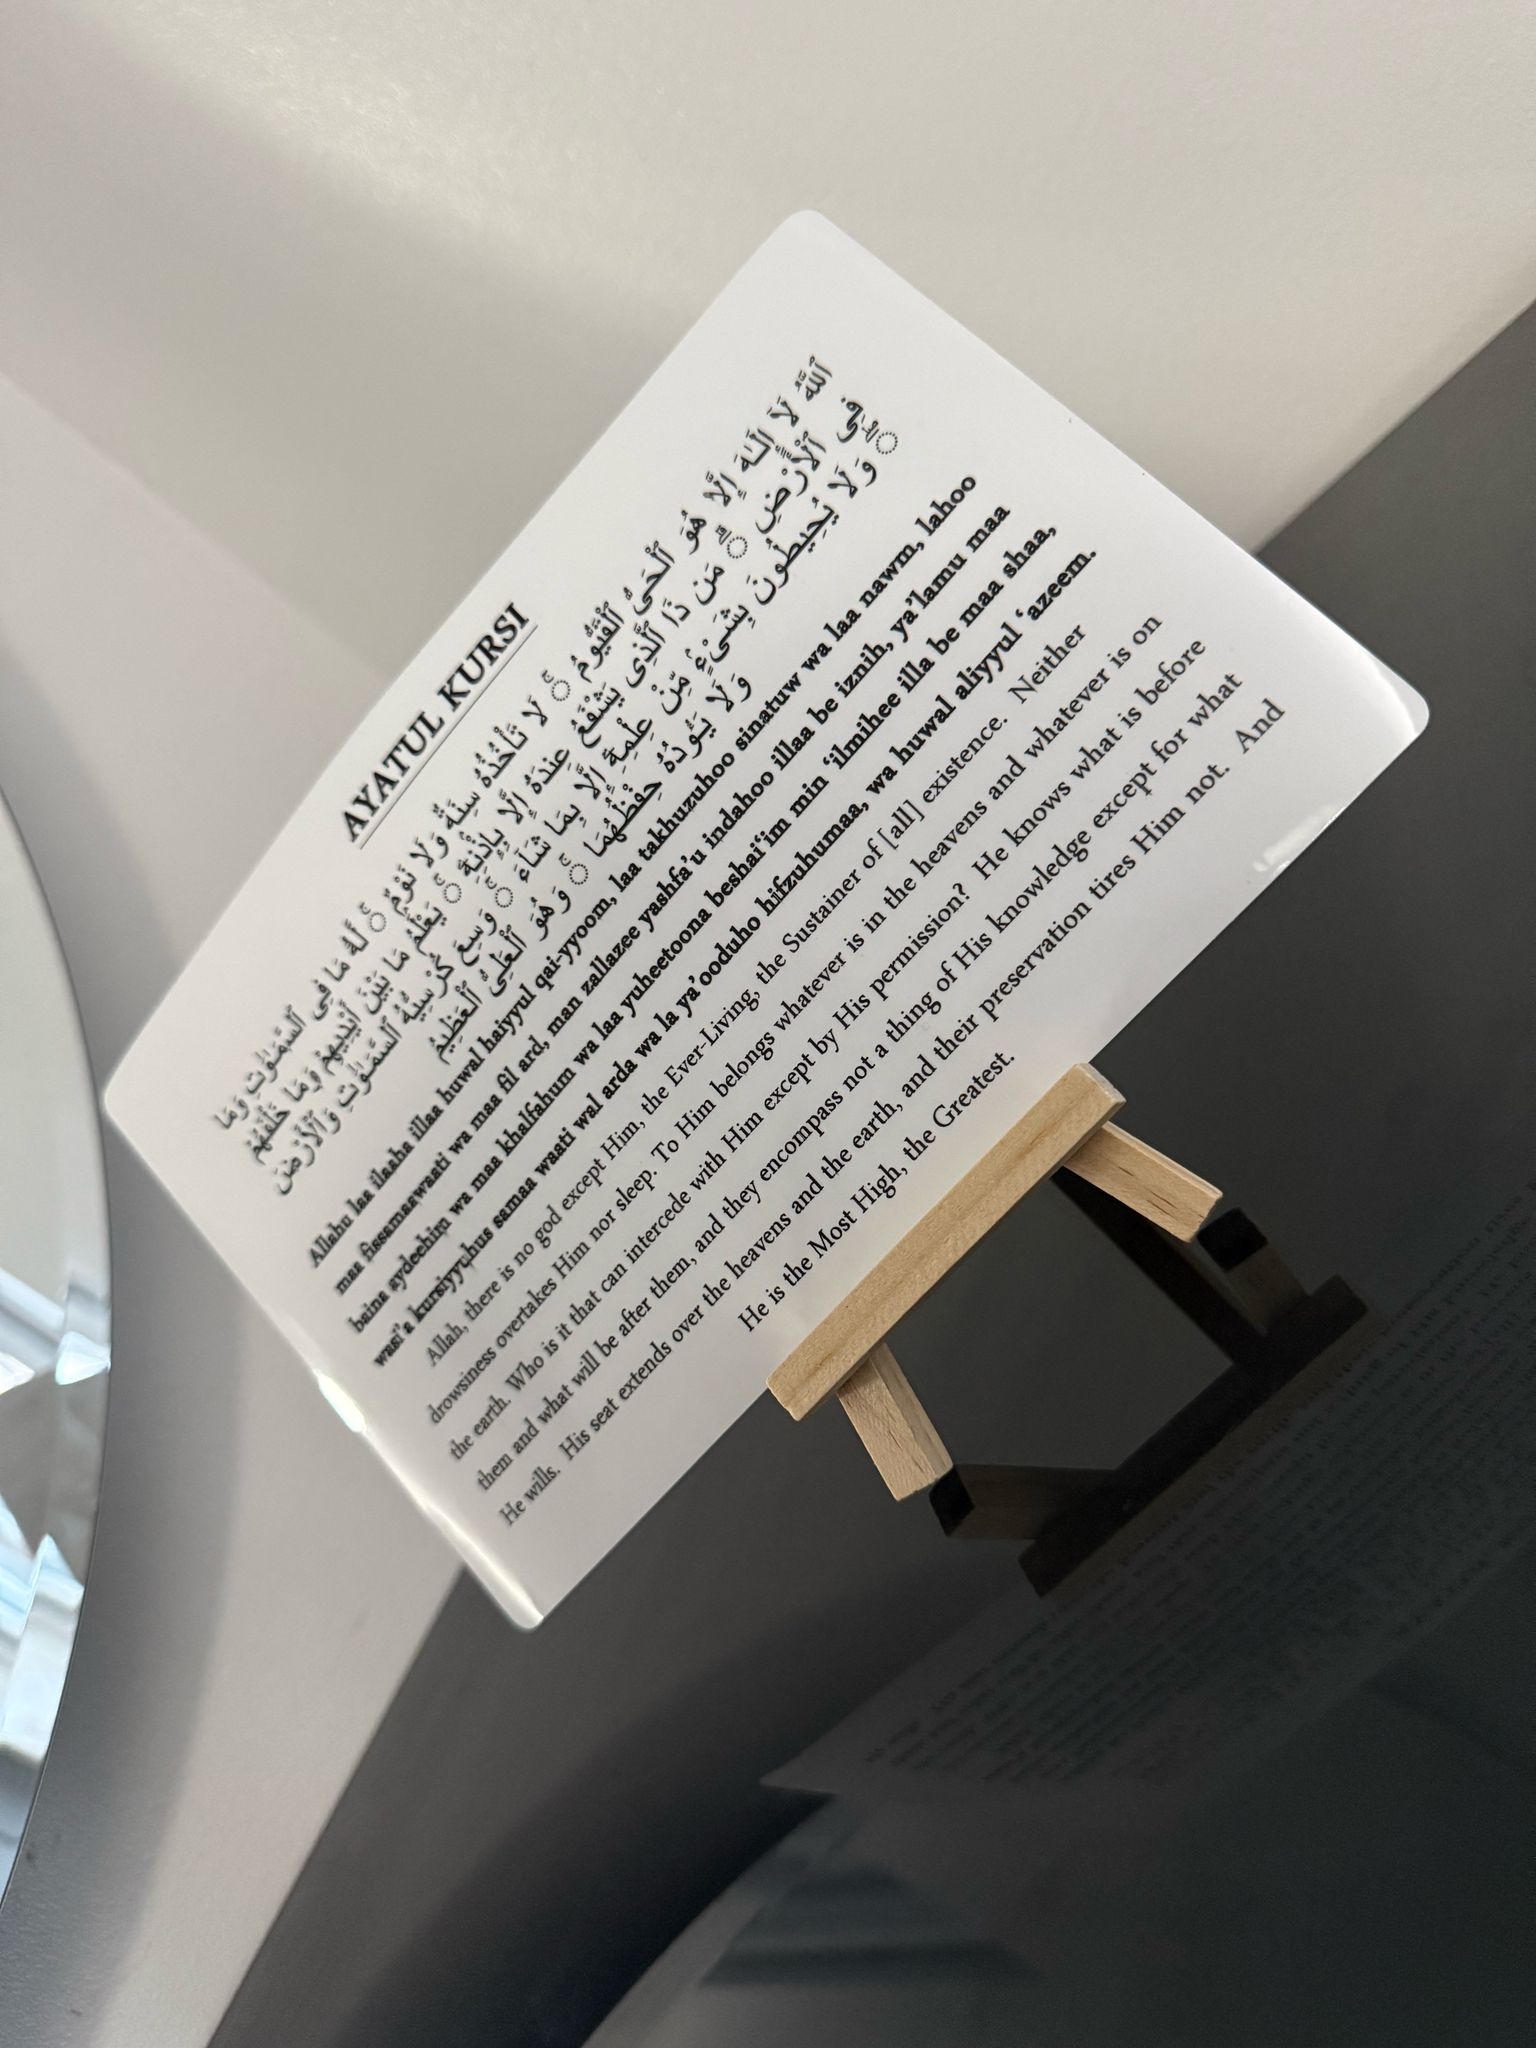 AYATUL KURSI
ٱللَّهُ لَآ إِلَـٰهَ إِلَّا هُوَ ٱلْحَىُّ ٱلْقَيُّومُ ۚ لَا تَأْخُذُهُۥ سِنَةٌ وَلَا نَوْمٌ ۚ لَّهُۥ مَا فِى ٱلسَّمَـٰوَٰتِ وَمَا
فِى ٱلْأَرْضِ ۗ مَن ذَا ٱلَّذِى يَشْفَعُ عِندَهُۥٓ إِلَّا بِإِذْنِهِۦ ۚ يَعْلَمُ مَا بَيْنَ أَيْدِيهِمْ وَمَا خَلْفَهُمْ
ۖ وَلَا يُحِيطُونَ بِشَىْءٍ مِّنْ عِلْمِهِۦٓ إِلَّا بِمَا شَآءَ ۚ وَسِعَ كُرْسِيُّهُ ٱلسَّمَـٰوَٰتِ وَٱلْأَرْضَ
ۖ وَلَا يَـُٔودُهُۥ حِفْظُهُمَا ۚ وَهُوَ ٱلْعَلِىُّ ٱلْعَظِيمُ
Allahu laa ilaaha illaa huwal haiyyul qai-yyoom, laa takhuzuhoo sinatuw wa laa nawm, lahoo
maa fissamaawaati wa maa fil ard, man zallazee yashfa'u indahoo illaa be iznih, ya'lamu maa
baina aydeehim wa maa khalfahum wa laa yuheetoona beshai'im min 'ilmihee illa be maa shaa,
wasi'a kursiyyuhus samaa waati wal arda wa la ya'ooduho hifzuhumaa, wa huwal aliyyul 'azeem.
Allah, there is no god except Him, the Ever-Living, the Sustainer of [all] existence. Neither
drowsiness overtakes Him nor sleep. To Him belongs whatever is in the heavens and whatever is on
the earth. Who is it that can intercede with Him except by His permission? He knows what is before
them and what will be after them, and they encompass not a thing of His knowledge except for what
He wills. His seat extends over the heavens and the earth, and their preservation tires Him not. And
He is the Most High, the Greatest.